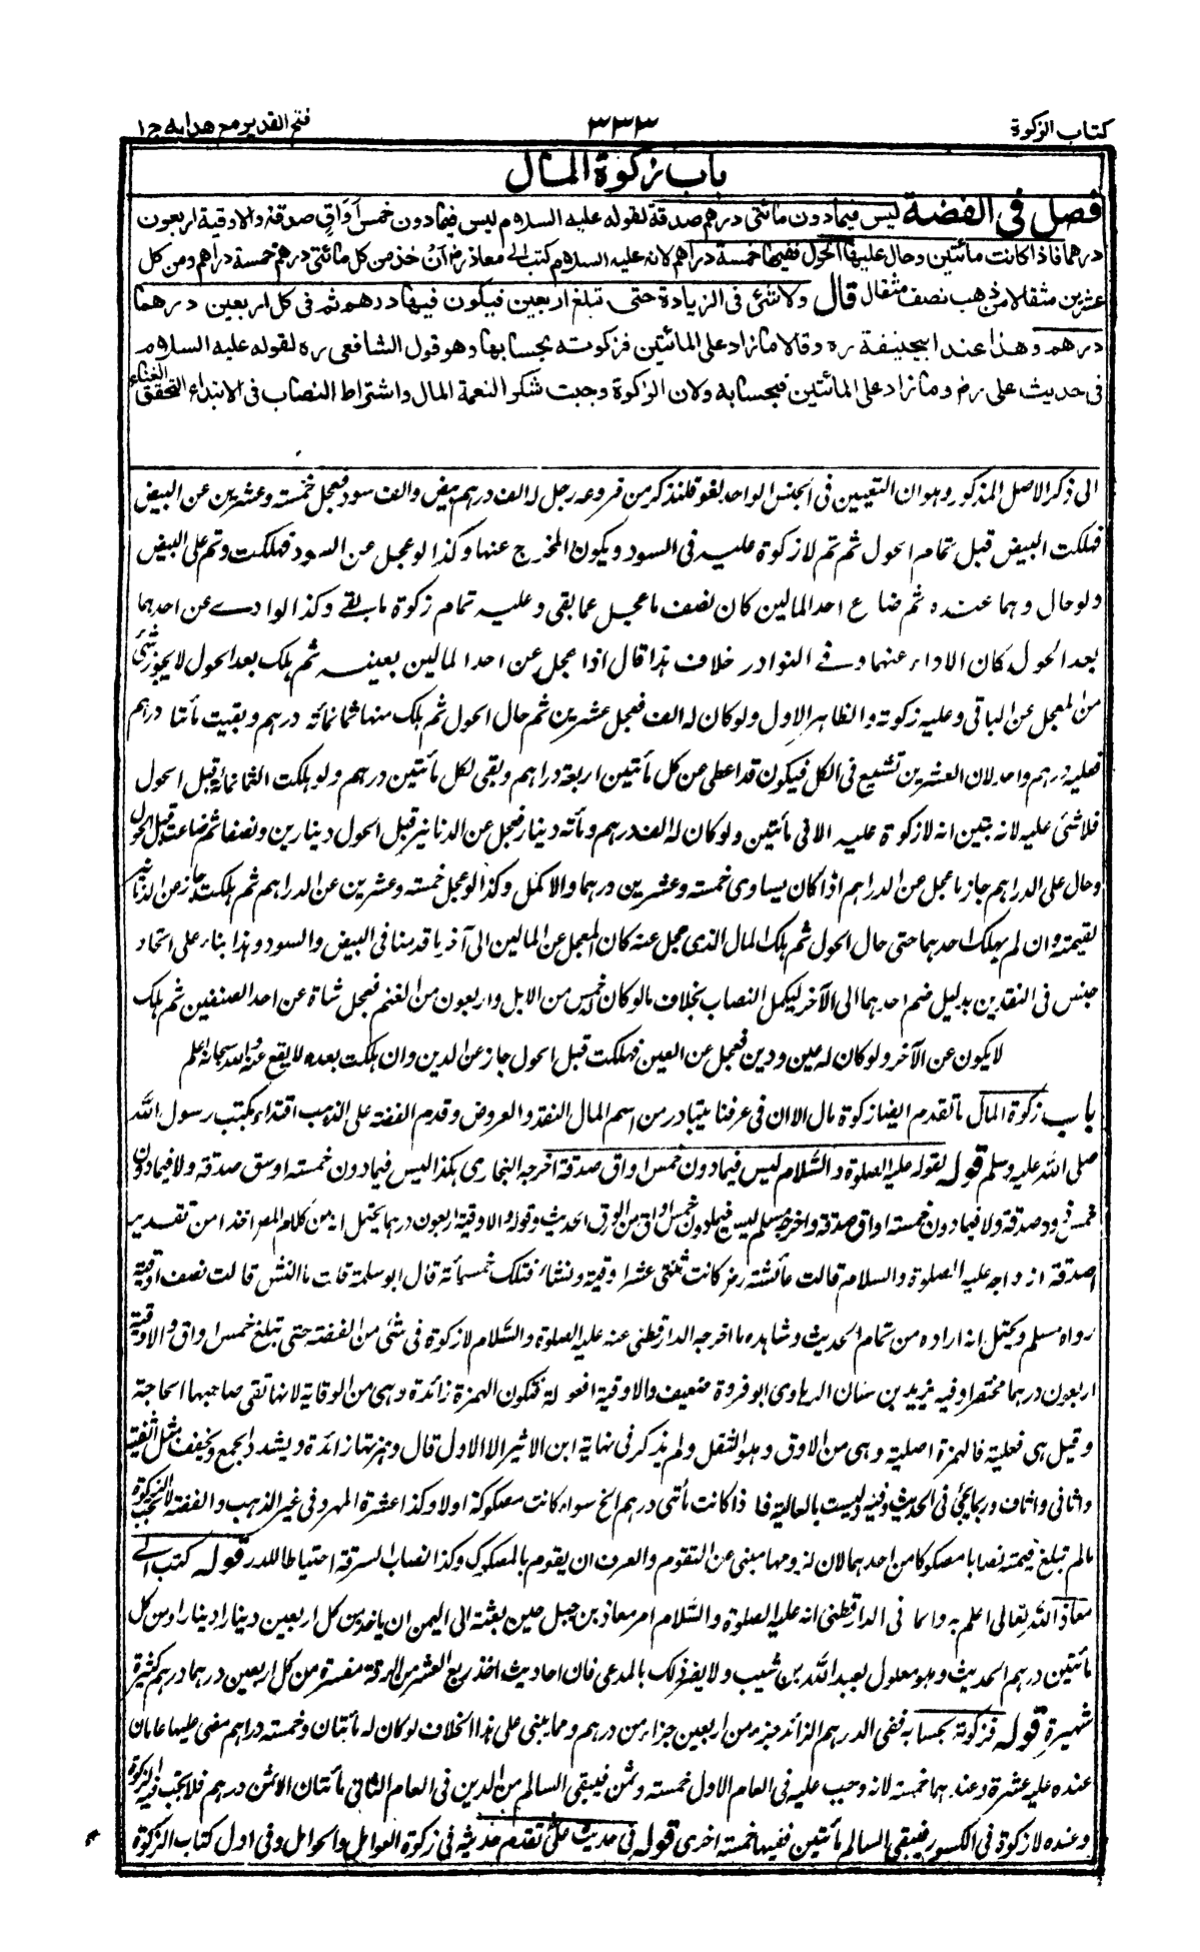 كتاب الزكوة
٣٣٣
فتح القدير مع هدايه ج١
باب زكوة المال
فصل فى الفضة ليس فيما دون مائتى درهم صدقة لقوله عليه السلام ليس فيما دون خمس أواق صدقة والاوقية اربعون
درهما فاذا كانت مائتين وحال عليها الحول ففيها خمسة دراهم لانه عليه السلام كتب الى معاذ رض أن خذ من كل مائتى درهم خمسة دراهم ومن كل
عشرين مثقالا من ذهب نصف مثقال قال ولا شئ فى الزيادة حتى تبلغ اربعين فيكون فيها درهم ثم فى كل اربعين درهما
درهم وهذا عند ابيحنيفة ره وقالا ما زاد على المائتين فزكوته بحسابها وهو قول الشافعى ره لقوله عليه السلام
فى حديث على رض وما زاد على المائتين فبحسابه ولان الزكوة وجبت شكر النعمة المال واشتراط النصاب فى الابتداء لتحقق الغناء
الى ذكر الاصل المذكور وهو ان التعيين فى الجنس الواحد لغو فلنذكر من فروعه رجل له الف درهم بيض والف سود فعجل خمسة وعشرين عن البيض
فهلكت البيض قبل تمام الحول ثم تم لا زكوة عليه فى السود ويكون المخرج عنها وكذا لو عجل عن السود فهلكت وتم على البيض
ولو حال وهما عنده ثم ضاع احد المالين كان نصف ما عجل عما بقى وعليه تمام زكوة ما بقى وكذا لو ادى عن احدهما
بعد الحول كان الاداء عنهما وفى النوادر خلاف هذا قال اذا عجل عن احد المالين بعينه ثم هلك بعد الحول لا يجوز شئ
من المعجل عن الباقى وعليه زكوته والظاهر الاول ولو كان له الف فعجل عشرين ثم حال الحول ثم هلك منها ثمانمائة درهم وبقيت مأتا درهم
فعليه درهم واحد لان العشرين تشيع فى الكل فيكون قد اعطى عن كل مأتين اربعة دراهم وبقى لكل مأتين درهم ولو هلكت الثمانمائة قبل الحول
فلا شئ عليه لانه تبين انه لا زكوة عليه الا فى مأتين ولو كان له الف درهم ومأته دينار فعجل عن الدنانير قبل الحول دينارين ونصفا ثم ضاعت قبل الحول
وحال على الدراهم جاز ما عجل عن الدراهم اذا كان يساوى خمسة وعشرين درهما والا كمل وكذا لو عجل خمسة وعشرين عن الدراهم ثم هلكت جاز عن الدنانير
بقيمته وان لم يهلك احدهما حتى حال الحول ثم هلك المال الذى عجل عنه كان المعجل عن المالين الى آخر ما قدمنا فى البيض والسود وهذا بناء على اتحاد
جنس فى النقدين بدليل ضم احدهما الى الآخر ليكمل النصاب بخلاف ما لو كان له خمس من الابل واربعون من الغنم فعجل شاة عن احد الصنفين ثم هلك
لا يكون عن الآخر ولو كان له عين ودين فعجل عن العين فهلكت قبل الحول جاز عن الدين وان هلكت بعده لا يقع عنه والله سبحانه اعلم
باب زكوة المال ما تقدم ايضا زكوة مال الا ان فى عرفنا يتبادر من اسم المال النقد والعروض وقدم الفضة على الذهب اقتداء بكتب رسول الله
صلى الله عليه وسلم قوله لقوله عليه الصلوة والسلام ليس فيما دون خمس اواق صدقة اخرجه البخارى هكذا ليس فيما دون خمسة اوسق صدقة ولا فيما دون
خمس ذود صدقة ولا فيما دون خمسة اواق صدقة واخرجه مسلم ليس فيما دون خمس اواق من الورق الحديث وقوله والاوقية اربعون درهما يحتمل انه من كلام المصـ اخذا من تقدير
اصدقة ازواجه عليه الصلوة والسلام قالت عائشة رض كانت ثنتى عشرة اوقية ونشا فتلك خمسمأة قال ابو سلمة قلت ما النش قالت نصف اوقية
رواه مسلم ويحتمل انه اراده من تمام الحديث وشاهده ما اخرجه الدارقطنى عنه عليه الصلوة والسلام لا زكوة فى شئ من الفضة حتى تبلغ خمس اواق والاوقية
اربعون درهما مختصرا وفيه يزيد بن سنان الرهاوى ابو فروة ضعيف والاوقية افعولة فتكون الهمزة زائدة وهى من الوقاية لانها تقى صاحبها الحاجة
وقيل هى فعلية فالهمزة اصلية وهى من الاوق وهو الثقل ولم يذكر فى نهاية ابن الاثير الا الاول قال وهمزتها زائدة ويشدد الجمع ويخفف مثل اثفية
واثافى واثاف وربما يجئ فى الحديث وقية وليست بالعالية فاذا كانت مأتى درهم الخ سواء كانت مصكوكة او لا وكذا عشرة المهر وفى غير الذهب والفضة لا تجب الزكوة
ما لم تبلغ قيمته نصابا مصكوكا من احدهما لان لزومها مبنى عن التقوم والعرف ان يقوم بالمصكوك وكذا نصاب السرقة احتياطا للدرء قوله كتب الى
معاذ الله تعالى اعلم به وانما فى الدارقطنى انه عليه الصلوة والسلام امر معاذ بن جبل حين بعثه الى اليمن ان ياخذ من كل اربعين دينارا دينارا ومن كل
مأتين درهم الحديث وهو معلول بعبد الله بن شبيب ولا يضر ذلك بالمدعى فان احاديث اخذ ربع العشر من الرقة مفسرة من كل اربعين درهما درهم كثيرة
شهيرة قوله فزكوته بحسابه ففى الدرهم الزائد جزء من اربعين جزاء من درهم ومما يبتنى على هذا الخلاف لو كان له مأتان وخمسة دراهم مضى عليها عامان
عنده عليه عشرة وعندهما خمسة لانه وجب عليه فى العام الاول خمسة وثمن فيبقى السالم من الدين فى العام الثانى مأتان الا ثمن درهم فلا يجب فيه الزكوة
وعنده لا زكوة فى الكسور فيبقى السالم مأتين ففيها خمسة اخرى قوله فى حديث على تقدم حديثه فى زكوة العوامل والحوامل وفى اول كتاب الزكوة